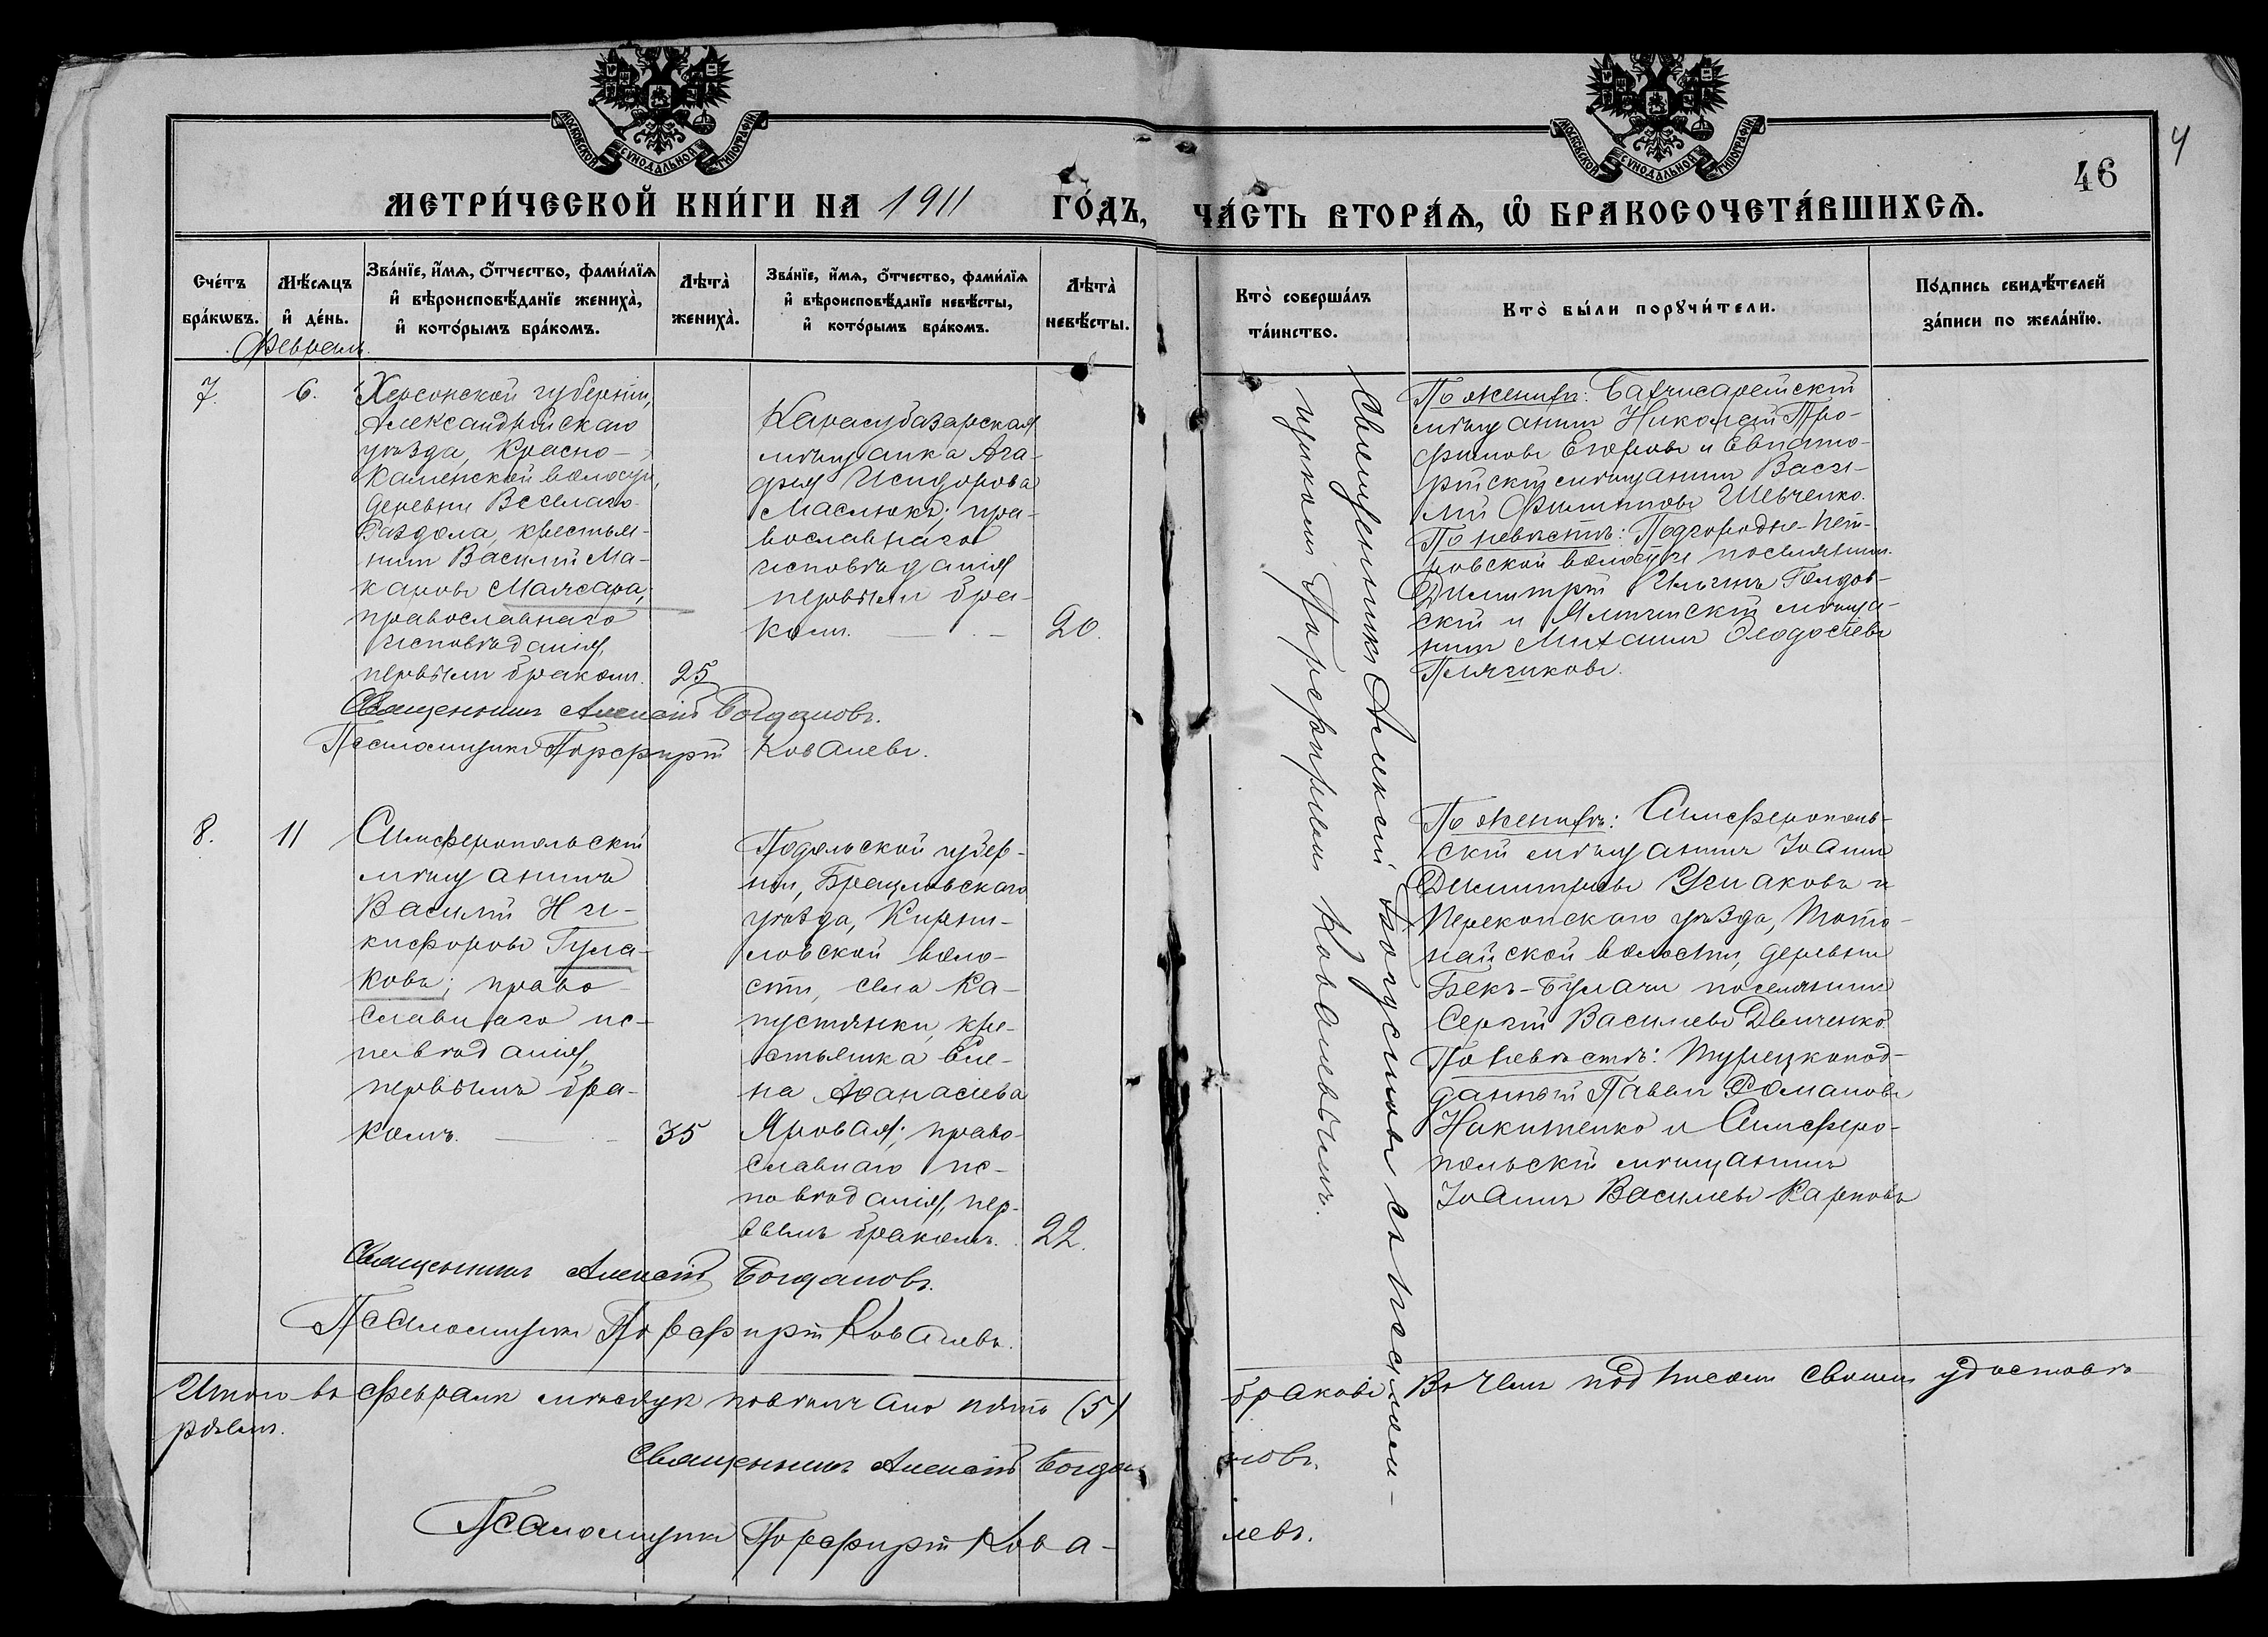 МОСКОВСКОЙ СѴНОДАЛЬНОЙ ТИПОГРАФІИ
МОСКОВСКОЙ СѴНОДАЛЬНОЙ ТИПОГРАФІИ
4
46
МЕТРИ́ЧЕСКОЙ КНИ́ГИ НА 1911 ГО́ДЪ, ЧА́СТЬ ВТОРА́Ѧ, Ѽ БРАКОСОЧЕТА́ВШИХСѦ.
Сче́тъ
бра́кѡвъ.
Мѣ́сѧцъ
и҆ де́нь.
Зва́нїе, и҆́мѧ, ѻ҆́тчество, фами́лїѧ
и҆ вѣроисповѣ́данїе жениха̀,
и҆ кото́рымъ бра́комъ.
Лѣта̀
жениха̀.
Зва́нїе, и҆́мѧ, ѻ҆́тчество, фами́лїѧ
и҆ вѣроисповѣ́данїе невѣ́сты,
и҆ кото́рымъ бра́комъ.
Лѣта̀
невѣ́сты.
Кто̀ соверша́лъ
та́инство.
Кто̀ бы́ли порꙋчи́тели.
По́дпись свидѣ́телей
за́писи по жела́нїю.
Февраль.
7.
6.
Херсонской губерніи,
Александрійскаго
уѣзда, Красно-
каменской волости,
деревни Веселаго
Раздола, крестья-
нинъ Василій Ма-
каровъ Маясара;
православнаго
исповѣданія,
первымъ бракомъ.
25
Карасубазарская
мѣщанка Ага-
фія Исидорова
Маслюкъ; пра-
вославнаго
исповѣданія
первымъ бра-
комъ.
20.
Священникъ Алексій Богдановъ.
Псаломщикъ Порфирій Ковалевъ.
Священникъ Алексій Богдановъ съ псалом-
щикомъ Порфиріемъ Ковалевымъ.
По женихѣ: Бахчисарейскій
мѣщанинъ Николай Про-
фимовъ Егоровъ и Евпато-
рійскій мѣщанинъ Васи-
лій Филипповъ Шевченко.
По невѣстѣ: Подгородне-Пет-
ровской волости поселянинъ
Димитрій Ильинъ Голдов-
скій и Ялтинскій мѣща-
нинъ Михаилъ Ѳеодосіевъ
Плячиковъ.
8.
11
Симферопольскій
мѣщанинъ
Василій Ни-
кифоровъ Гула-
ковъ; право-
славнаго ис-
повѣданія,
первымъ бра-
комъ.
35
Подольской губер-
ніи, Брацлавскаго
уѣзда,
волo-
сти, села Ка-
пустянки, кре-
стьянка Еле-
на Аѳанасіева
Яровая; право-
славнаго ис-
повѣданія, пер-
вымъ бракомъ.
22.
Священникъ Алексій Богдановъ.
Псаломщикъ Порфирій Ковалевъ.
По женихѣ: Симферополь-
скій мѣщанинъ Іоаннъ
Димитріевъ Ушаковъ и
Перекопскаго уѣзда, Тото-
найской волости, деревни
Бекъ-Булачи поселянинъ
Сергій Василіевъ Двиченко.
По невѣстѣ: Турецкопод-
данный Павелъ Романовъ
Никитенко и Симферо-
польскій мѣщанинъ
Іоаннъ Василіевъ Карповъ
Итого въ февралѣ мѣсяцѣ повѣнчано пять (5) браковъ. Въ чемъ подписомъ своимъ удостовѣ-
ряемъ.
Священникъ Алексій Богдановъ.
Псаломщикъ Порфирій Кова-левъ.